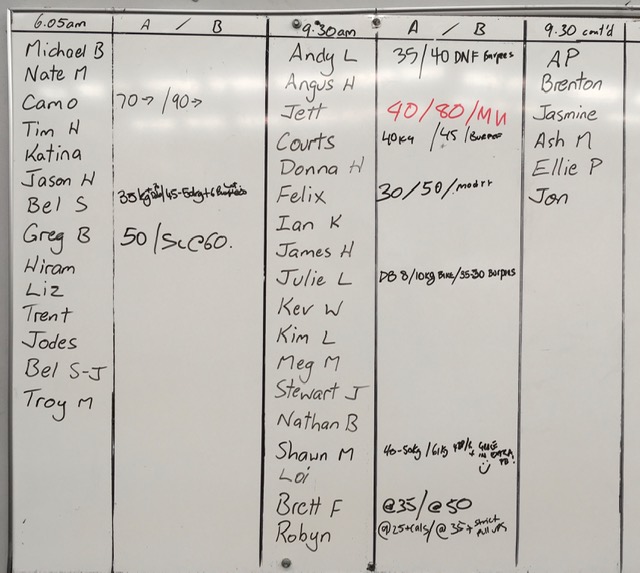 6.05am A / B
Michael B
Nate M
Camo 70→ / 90→
Tim H
Katina
Jason H
Bel S 35kg /45-50kg+6
Greg B 50/Sc@60.
Hiram
Liz
Trent
Jodes
Bel S-J
Troy M
9:30am A / B
Andy L 35/40 DNF Burpees
Angus H
Jett 40/80/MU
Courts 40kg /45 /Burpee
Donna H
Felix 30/50/
Ian K
James H
Julie L DB 8/10kg Bike/35-30 Burpees
Kev W
Kim L
Meg M
Stewart J
Nathan B
Shawn M 40-50kg /61kg
Loi
Brett F @35/@50
Robyn @25+cals/@35+ strict pull ups
9.30 cont'd
AP
Brenton
Jasmine
Ash M
Ellie P
Jon